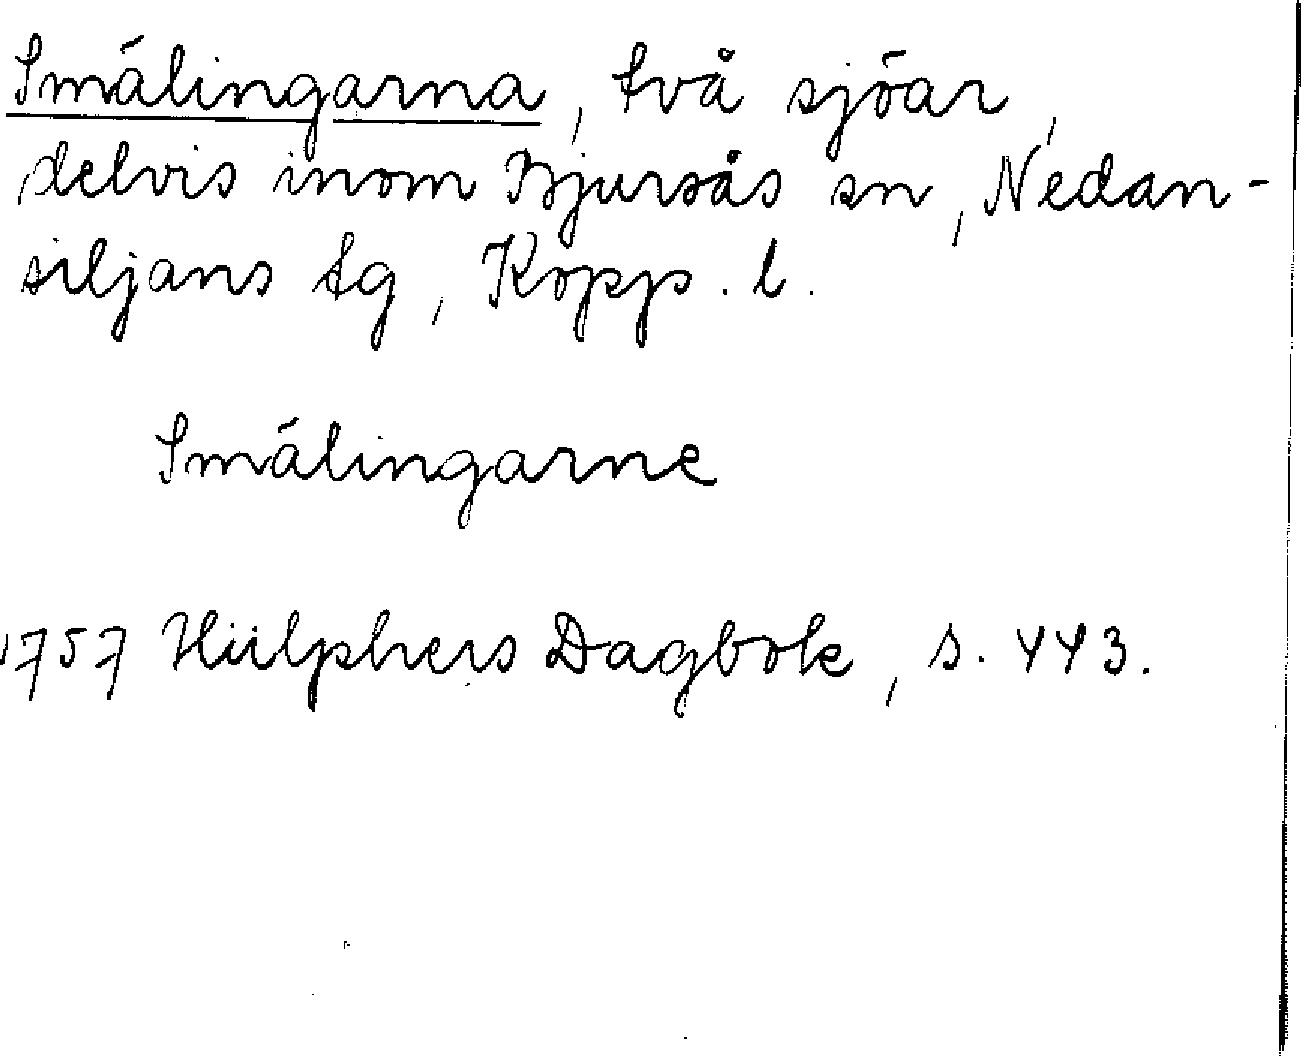 Smälingarna, två sjöar,
delvis inom Bjursås sn, Nedan-
siljans tg, Kopp. l.
Smälingarne
1757 Hülphers Dagbok, s. 443.